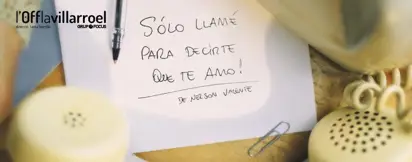 l'Offlavillarroel
GRUP FOCUS
SÓLO LLAMÉ
PARA DECIRTE
QUE TE AMO!
DE NELSON VALENTE